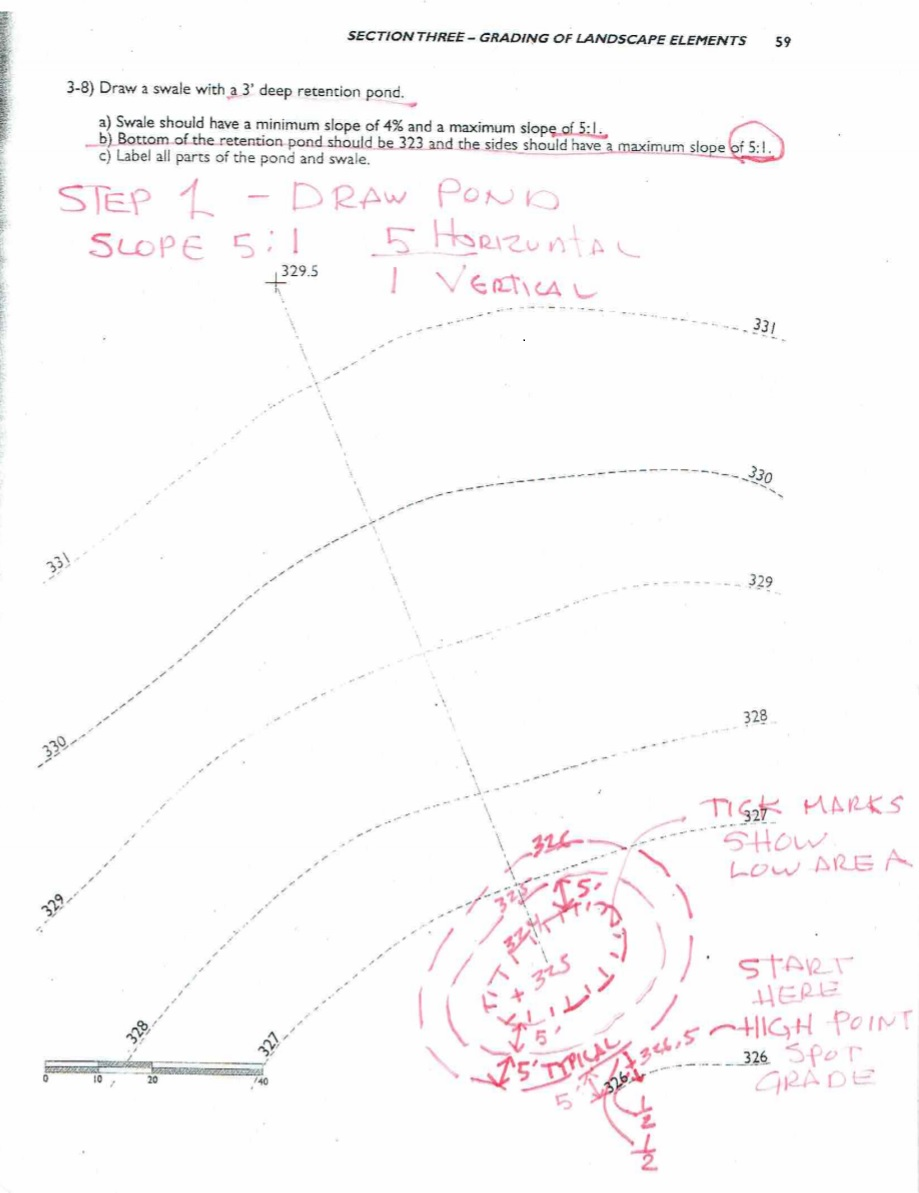 SECTION THREE – GRADING OF LANDSCAPE ELEMENTS 59
3-8) Draw a swale with a 3' deep retention pond.
a) Swale should have a minimum slope of 4% and a maximum slope of 5:1.
b) Bottom of the retention pond should be 323 and the sides should have a maximum slope of 5:1.
c) Label all parts of the pond and swale.
STEP 1 - DRAW POND
SLOPE 5:1 5 HORIZUNTAL
1 VERTICAL
329.5
331
330
331
329
328
330
TICK MARKS
327
SHOW
LOW AREA
326
325
5'
329
324
325
START
HERE
HIGH POINT
328
327
5'
326.5
326 SPOT
5' TYPICAL
GRADE
326
5'
0 10 20 40
1/2
1/2